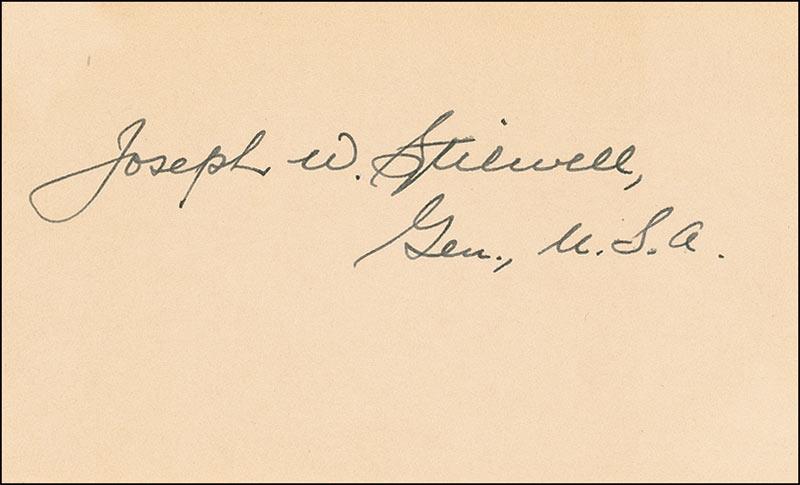 Joseph W. Stilwell,
Gen., U.S.A.